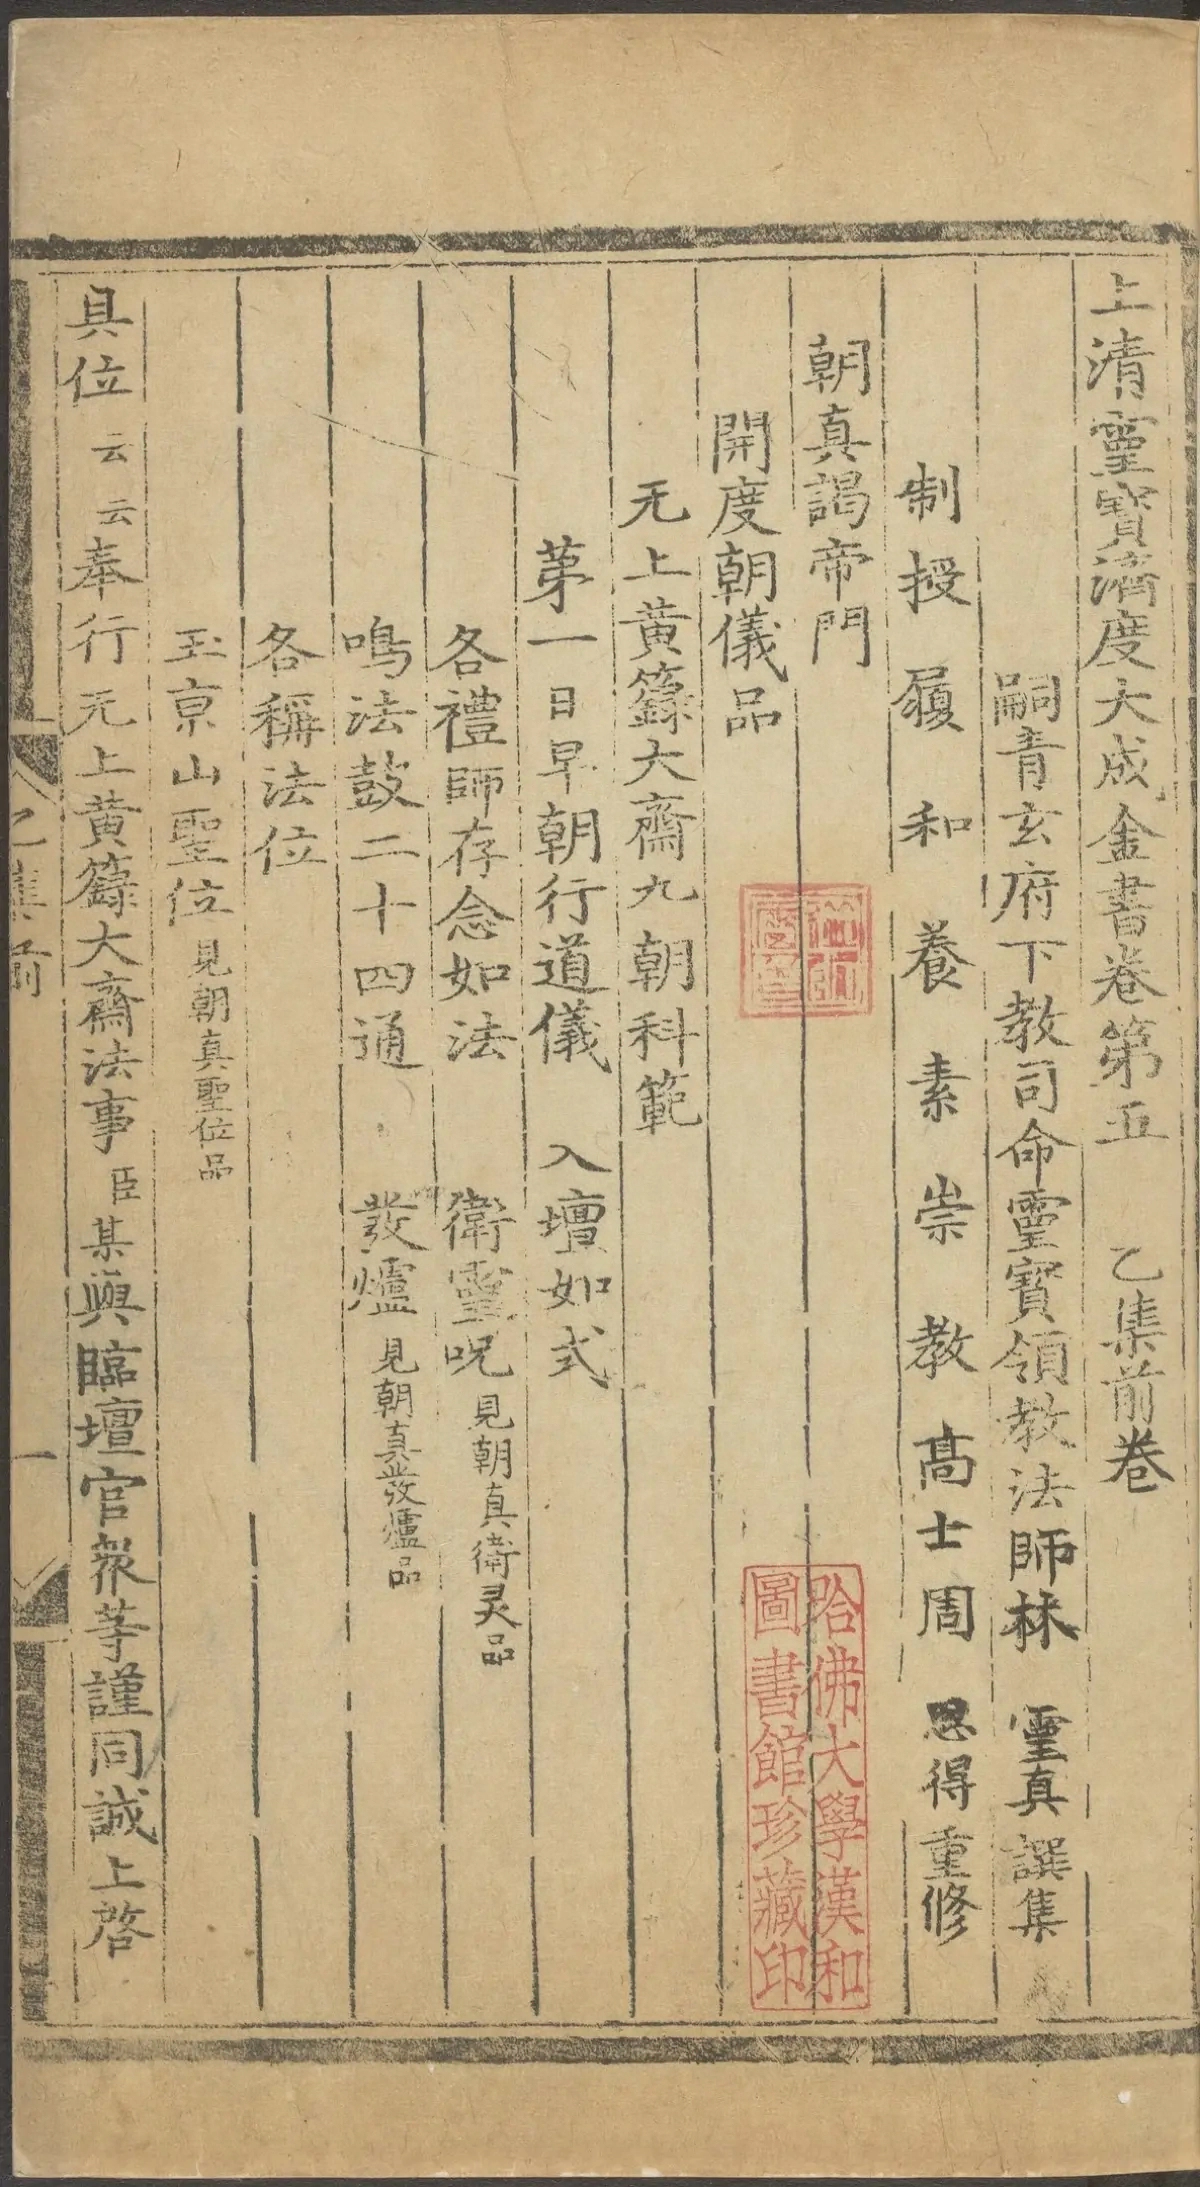 上清靈寶濟度大成金書卷第五 乙集前卷
嗣青玄府下教司命靈寶領教法師林 靈真 譔集
制授履和養素崇教高士周 思得重修
朝真謁帝門
開度朝儀品
无上黃籙大齋九朝科範
苐一日早朝行道儀 入壇如式
各禮師存念如法 衛靈呪見朝真衛灵品
鳴法鼓二十四通 發爐見朝真發爐品
各稱法位
玉亰山聖位見朝真聖位品
具位云云奉行无上黃籙大齋法事臣某與臨壇官衆等謹同誠上啓
乙集前
一
哈佛大學漢和
圖書館珍藏印